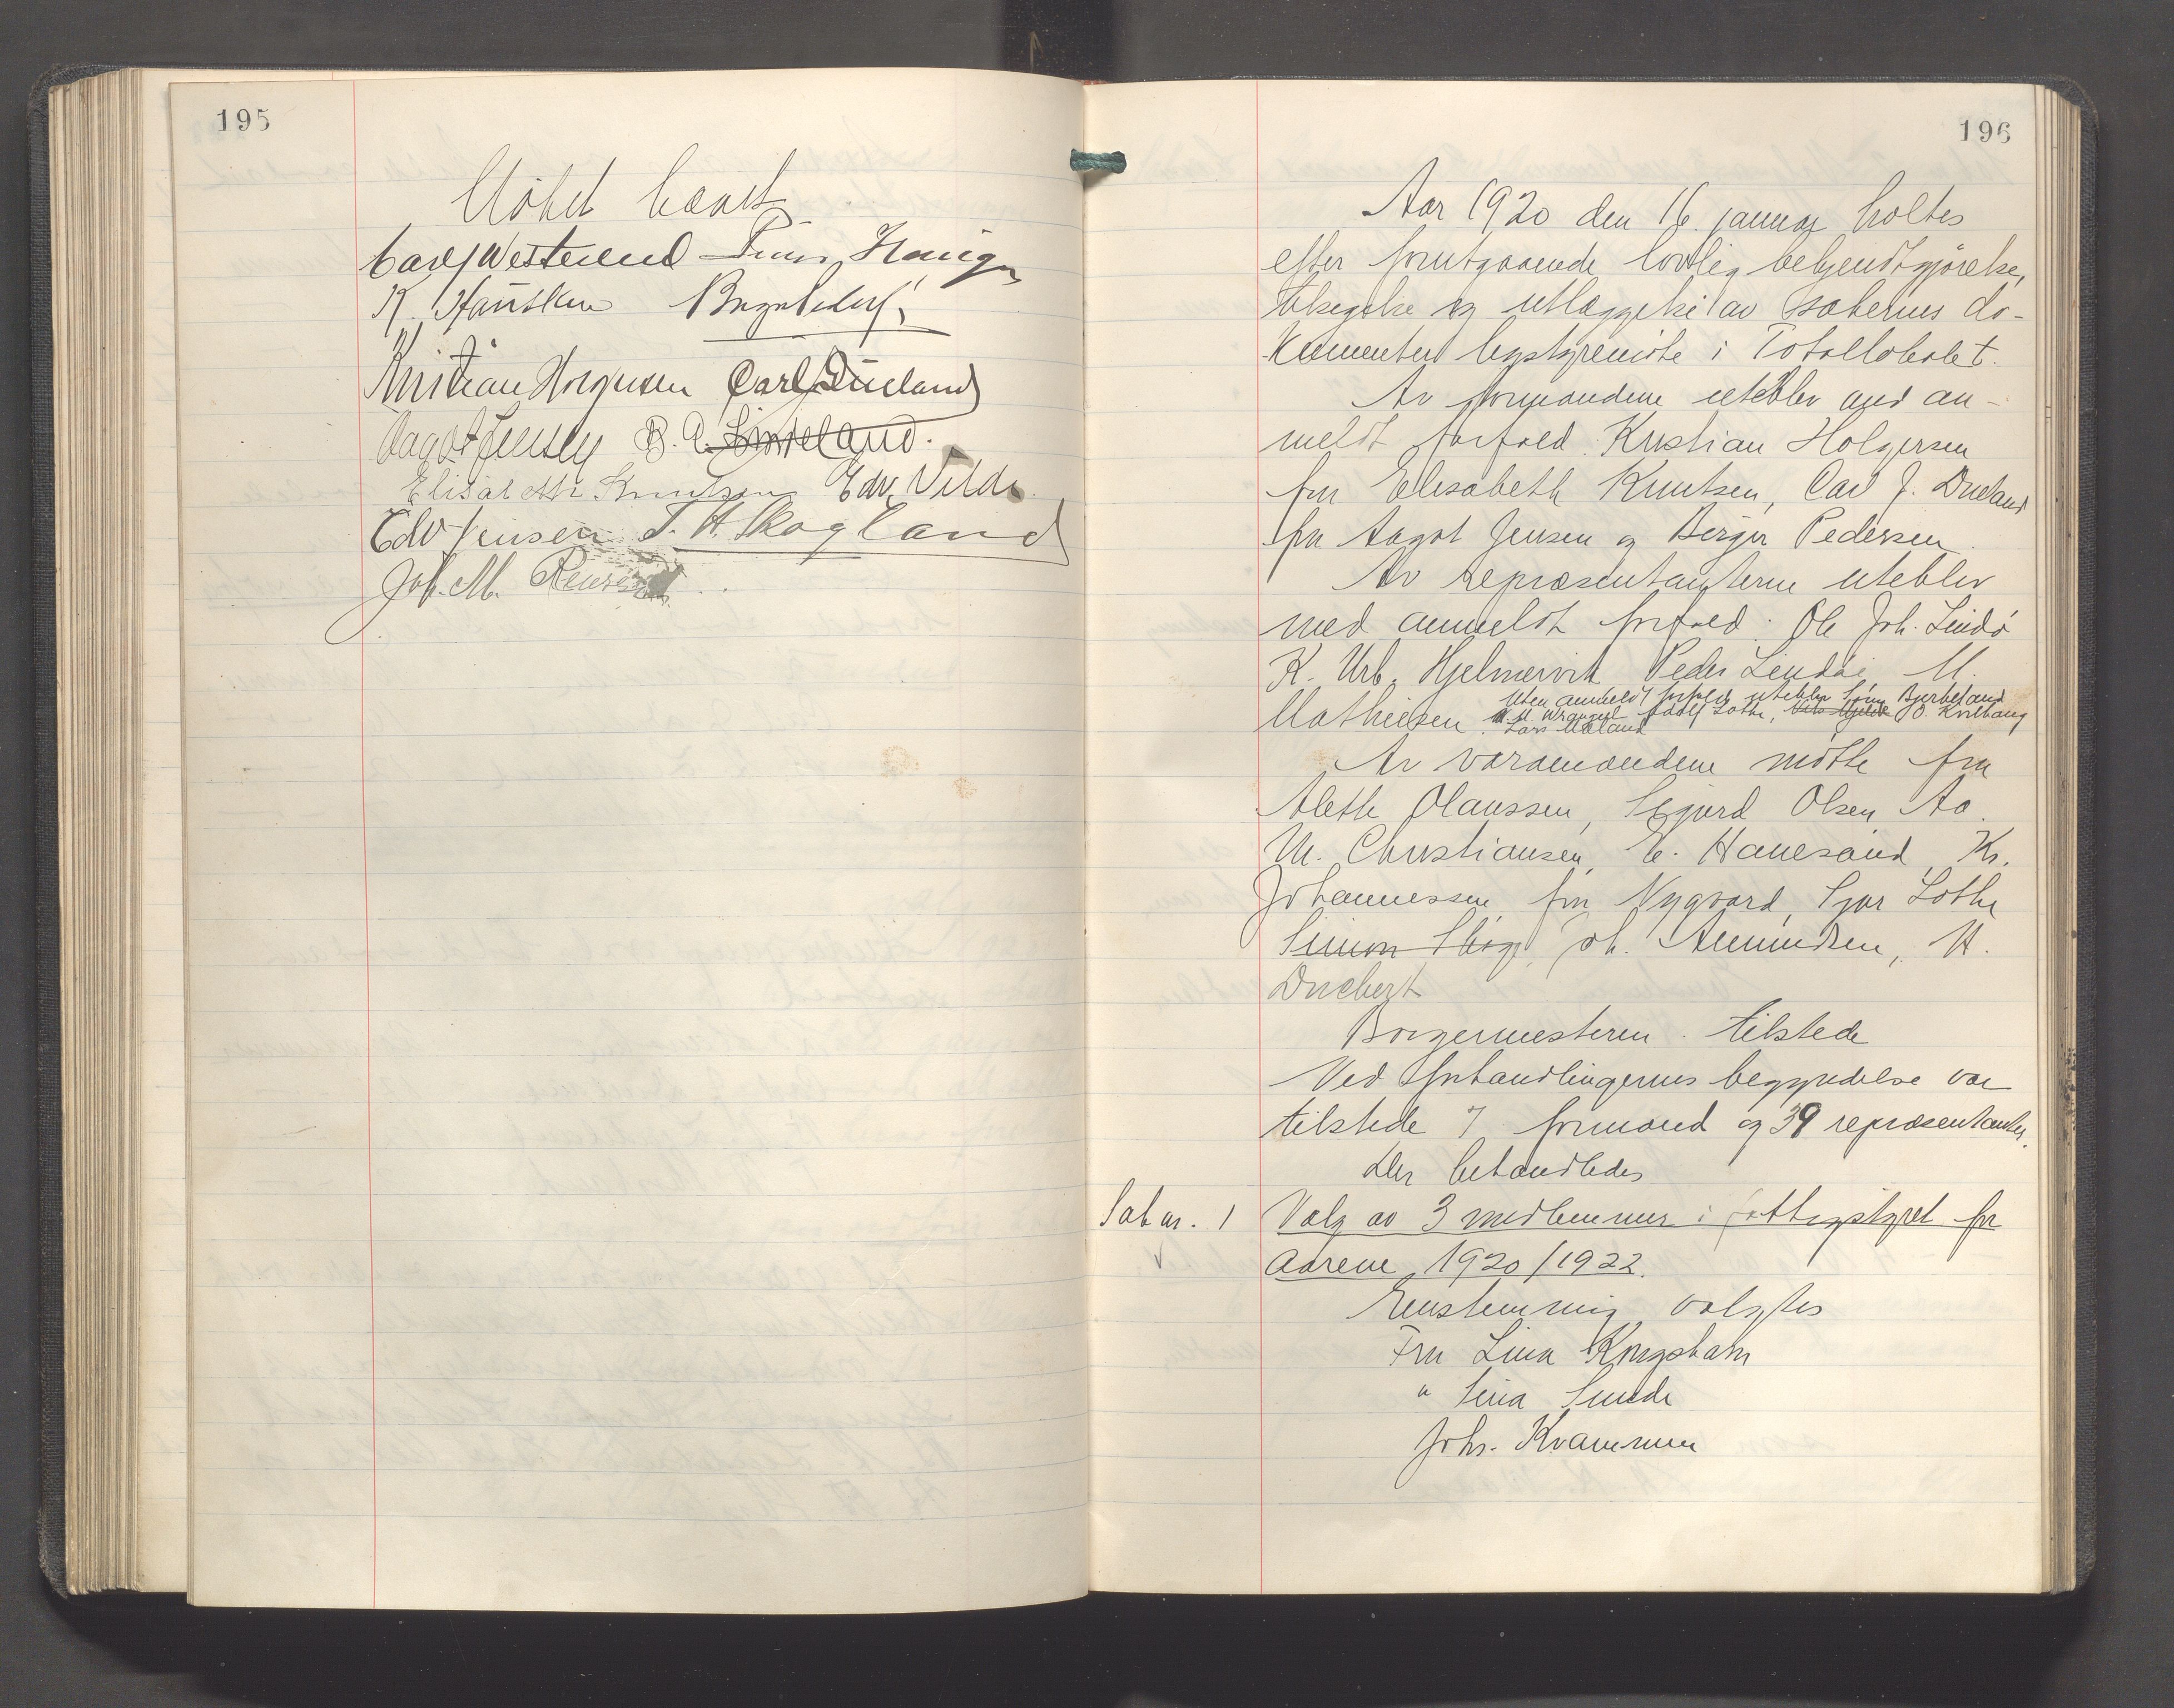 195
Møtet hævet
Carl Westerlund Finn Haugen
K. Hausken
Kristian Holgersen Carl J. Dueland
Aagot Jensen B. A.
Elisabeth Knutzen Edv. Vilde
Edv Jensen T. H. Skogland
Joh. M.
196
Aar 1920 den 16. januar holtes
efter forutgaaende lovlig bekjendtgjørelse,
tilsigelse og utlæggelse av sakernes do-
kumenter bystyremøte i Totallokalet.
Av formændene utebler med an-
meldt forfald: Kristian Holgersen
fru Elisabeth Knutsen, Carl J. Dueland
fru Aagot Jensen og Birger Pedersen.
Av repræsentanterne utebler
med anmeldt forfald: Ole Joh. Lindø
K. Urb. Hjelmervik Peder Lindøe M.
Uten anmeldt forfald utebler Sjur Bjerkeland
Mathiesen. M. M. Wrangel Adolf Lothe, O. Kvilhaug
Lars
Av varamændene møtte fru
Alethe Olaussen, Sigurd Olsen Aa.
M. Christiansen, E. Hanesand Kr.
Johannessen fru Nygaard, Sjur Lothe
Simon Joh. Amundsen, H.
Duckert
Borgermesteren tilstede
Ved forhandlingernes begyndelse var
tilstede 7 formænd og 39 repræsentanter.
Der behandledes
Sak nr. 1 Valg av 3 medlemmer i fattigstyret for
aarene 1920/1922.
Enstemmig valgtes
Fru Lina Kongshavn
" Sina Sunde
Johs. Kvammen